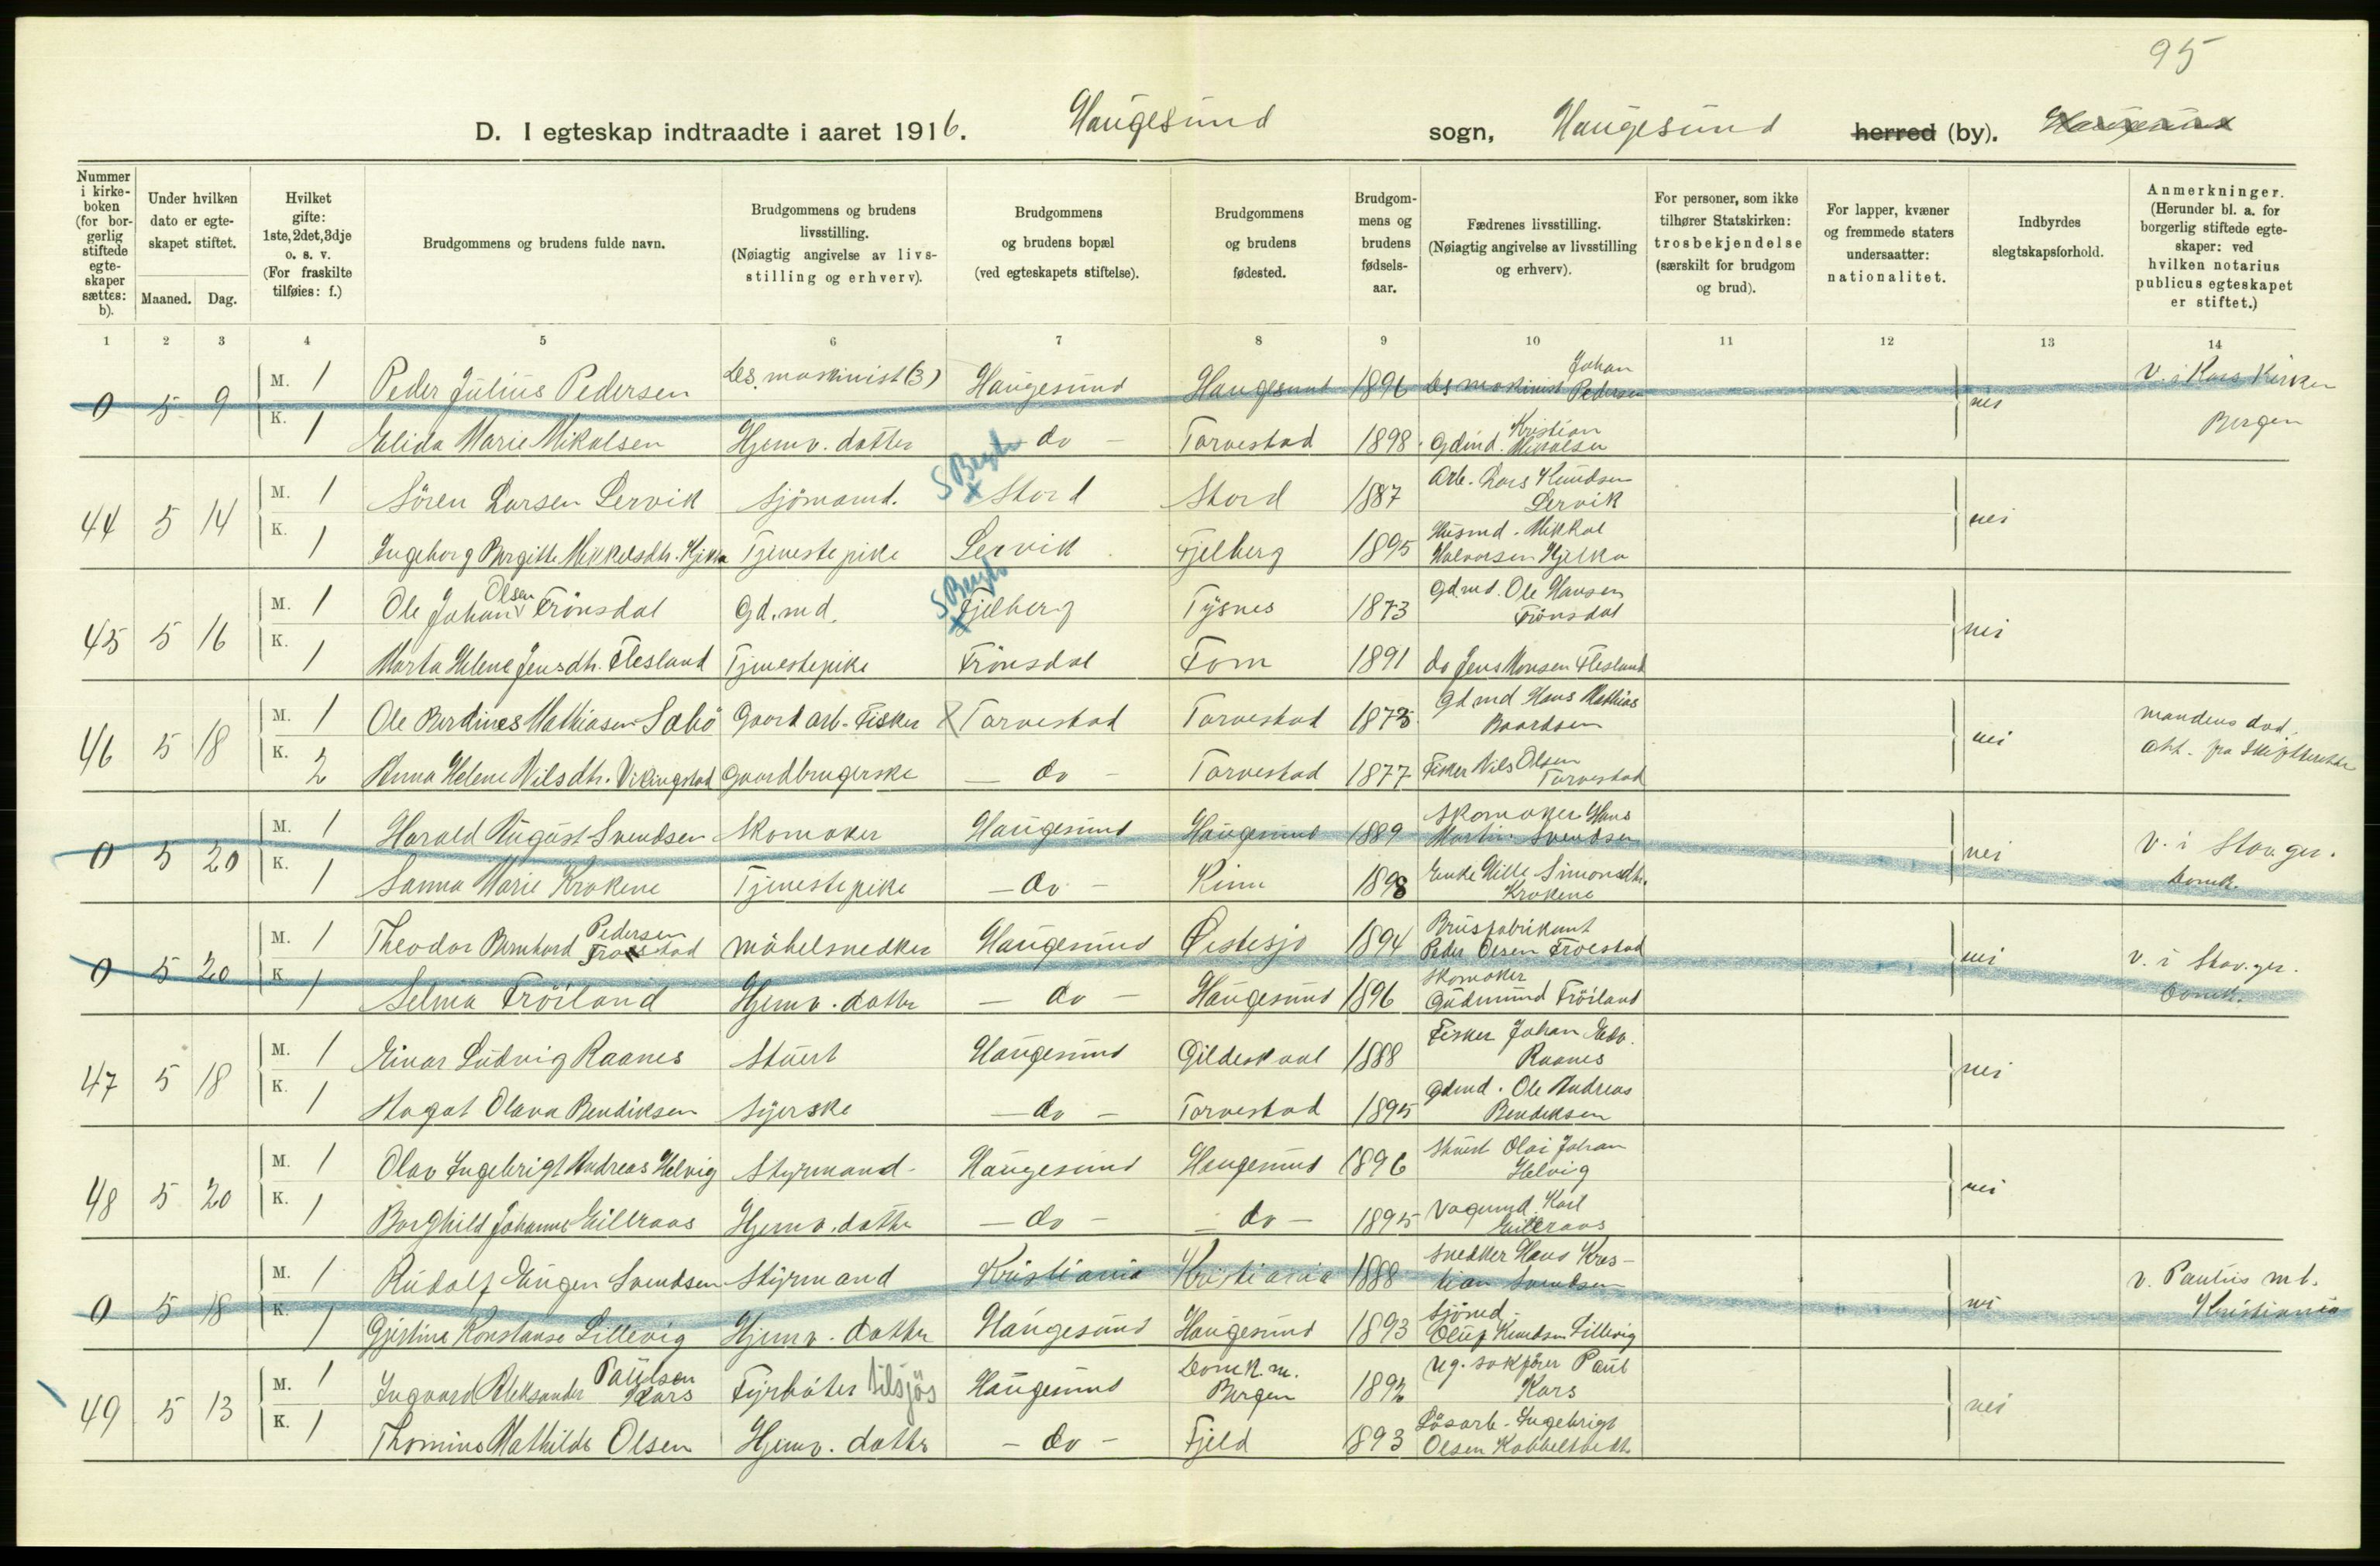 95
D. I egteskap indtraadte i aaret 1916. Haugesund sogn, Haugesund herred (by).
Nummer i kirke- boken (for bor- gerlig stiftede egte- skaper sættes: b).
Under hvilken dato er egte- skapet stiftet.
Maaned. Dag.
Hvilket gifte: 1ste, 2det, 3dje o. s. v. (For fraskilte tilføies: f.)
Brudgommens og brudens fulde navn.
Brudgommens og brudens livsstilling. (Nøiagtig angivelse av livs- stilling og erhverv).
Brudgommens og brudens bopæl (ved egteskapets stiftelse).
Brudgommens og brudens fødested.
Brudgom- mens og brudens fødsels- aar.
Fædrenes livsstilling. (Nøiagtig angivelse av livsstilling og erhverv).
For personer, som ikke tilhører Statskirken: trosbekjendelse (særskilt for brudgom og brud).
For lapper, kvæner og fremmede staters undersaatter: nationalitet.
Indbyrdes slegtskapsforhold.
Anmerkninger. (Herunder bl. a. for borgerlig stiftede egte- skaper: ved hvilken notarius publicus egteskapet er stiftet.)
1 2 3 4 5 6 7 8 9 10 11 12 13 14
0 5 9 M. 1 Peder Julius Pedersen Les. maskinist (3) Haugesund Haugesund 1896 Les maskinist Johan Pedersen nei V. i Kors Kirken
K. 1 Elida Marie Mikalsen Hjemv. datter do Torvestad 1898 Gdmd. Kristian Mikalsen Bergen
44 5 14 M. 1 Sören Larsen Lervik Sjömand. S Bergh x Stord Stord 1887 Arb. Lars Knudsen Lervik nei
K. 1 Ingeborg Bergitte Mikkelsdtr. Tjenestepike Lervik Fjelberg 1895 Husmd. Mikkal Halvorsen
45 5 16 M. 1 Ole Johan Olsen Frönsdal Gd.md. S Bergh x Fjelberg Tysnes 1873 Gdmd. Ole Hansen Frönsdal nei
K. 1 Marta Helene Jensdtr. Flesland Tjenestepike Frönsdal 1891 do Jens Monsen Flesland
46 5 18 M. 1 Ole Berdines Mathiasen Sabö Gaard arb. Fisker X Torvestad Torvestad 1875 Gdmd Hans Mathias Baardsen nei mandens död
K. 2 Anna Helene Nilsdtr. Vikingstad Gaardbrugerske do Torvestad 1877 Fisker Nils Olsen Torvestad att. fra Skifteretten
0 5 20 M. 1 Harald August Svendsen Skomaker Haugesund Haugesund 1889 Skomaker Hans Martin Svendsen nei V. i Stav.ger.
K. 1 Sanna Marie Krokene Tjenestepike do Kinn 1898 Enke Hille Simonsdtr. Krokene Domk.
0 5 20 M. 1 Theodor Bernhard Pedersen Möbelsnedker Haugesund Østesjö 1894 Brusfabrikant Peder Olsen Troestad nei V. i Stav.ger.
K. 1 Selma Fröiland Hjemv. datter do Haugesund 1896 Skomaker Gudmund Fröiland Domk.
47 5 18 M. 1 Einar Ludvig Raanes Stuert Haugesund Gildeskaal 1888 Fisker Johan Edv. Raanes nei
K. 1 Hagat Olava Bendiksen Syerske do Torvestad 1895 Gdmd. Ole Andreas Bendiksen
48 5 20 M. 1 Olav Ingebrigt Andreas Helvig Styrmand Haugesund Haugesund 1896 Stuert Olai Johan Helvig nei
K. 1 Borghild Johanne Eilleraas Hjemv. datter do do 1895 Vognmd. Karl Eilleraas
0 5 18 M. 1 Rudolf Eugen Svendsen Styrmand Kristiania Kristiania 1888 Snedker Hans Kris- tian Svendsen nei V. Paulus mt.
K. 1 Gjertine Konstanse Lillevig Hjemv. datter Haugesund Haugesund 1893 Sjömd. Oluf Knudsen Lillevig Kristiania
49 5 13 M. 1 Ingvard Aleksander Paulsen Kars Fyrböter tilsjös Haugesund Domk. m. Bergen 1892 Ug. sakförer Paul Kars nei
K. 1 Thomine Mathilde Olsen Hjemv. datter do Fjeld 1893 Lösarb. Ingebrigt Olsen